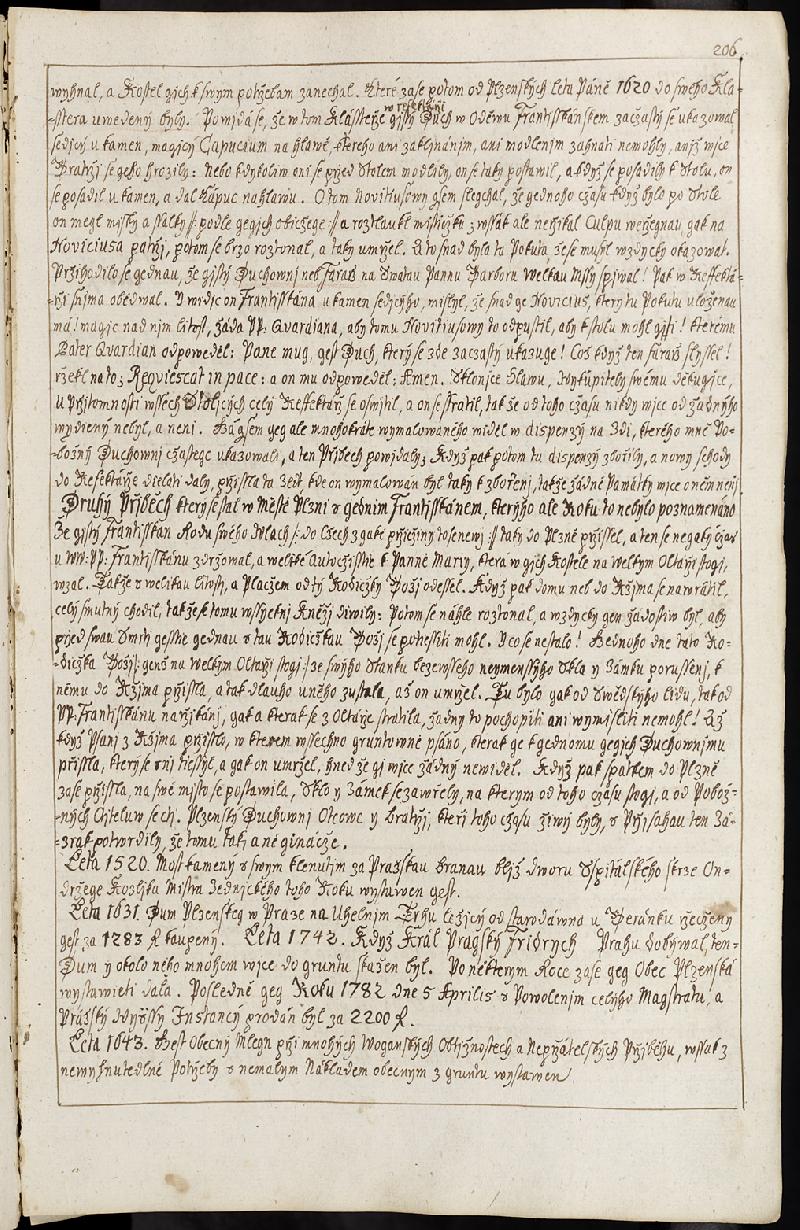 206
wyhnal, a Kostel gich k swym potržebam zanechal. Které zase potom od Plzenských Léta Páně 1620 do swého Kla-
-sstera uwedený byly. Powjdá se, že w tom Klássteře w refektáři gistý Duch w Oděwu Frantisskánskem začzasty se ukazowal
sedicy u kamen, magicy Capucium na hlawě, kterého ani zaklјnánjm, ani modlenjm zahnati nemohly, anjž wjce
Bratřj se geho hrozily: Nebo kdykoliw ani se přzed Stolem modlily, on se taky postawil, a když se posadily k Stolu, on
se posadil u kamen, a dal kápuc na hlawu. O tom Novitiusowy gsem slegchal, že gednoho čzasu když bylo po Stole
on megl misky a ssalky /: podle gegich običzege :/ a roztlaukl misstičzku z wossák ale neřzikal Culpu weřzegnau, gak na
Noviciusa patřzj, potom se brzo roztonal, a taky umřzel. A to snad byla ta Pokuta že se musyl wzdycky okazowat.
Přzihodilo se gednau, že gistý Duchownj neb Farařz na Swatau Pannu Barboru Welkau Mssy spjwal! Pak w Reffektá-
-řzi s njma obědwal. A widic on Frantisskána u kamen sedicyho, mislyl, že snad ge Novicius, který tu Pokutu uloženau
má! magic nad njm litost, žáda PP. Qvardiana, aby tomu Novitiusowy to odpustil, aby k stolu mohl gjti! kterému
Pater Qvardian odpowěděl: Pane mug, gest Duch, který se zde začzastý ukazuge! Což když ten farařz slyssel!
řzekl na to; Reqviescat in pace: a on mu odpowěděl: Amen. Sklonice Hlawu, Wykupitely swému děkugice,
u přzitomnosti wssech Stoljcých celý Reffektařz se oswjtil, a on se stratil, tak že od toho čzasu nikdy wjce od žadnyho
wyděny nebyl, a neni. Já gsem geg ale mnohokráte wymalowaného widěl w dispenzy na Zdi, kterého mně Po-
-božný Duchownj čzastege ukazowali, a ten Přjbech powjdaly; Když pak potom tu dispenzy zbořzily, a nowy schody
do Refektářze dělati daly, přzissla ta Zeď, kde on wymalowán byl taky k zbořzenj, takže žádné Památky wjce o něm nenj.
Druhý Přjběch který se stal w Městě Plzni s gednim Frantisskánem, kterýho ale Roku to nebylo poznamenáno
Že gistý Frantisskan Rodu swého Wlach /: do Čzech z gaké přzičzjny to se newj :/ taky do Plzně přzissel, a ten se negaký čzas
u WW: PP: Frantisskánu zdržowal, a weliké Autočzisstie k Panně Marij, která w gich Kostele na Welkym Oltářzi stogj,
wzal. Takže s welikau litosti, a Placžem od tý Rodičzky Božj odessel. Když pak domu neb do Ržjma se nawrátil,
celý smutný chodil, takže k tomu wssyckni Kněžj diwily: Potom se náhle roztonal, a wzdycky gen žádostiw byl, aby
přzed swau Smrti gesstě gednau s tau Rodičzkau Božj se potěssiti mohl. I co se nestalo! Gednoho dne tato Ro-
-dičzka Božj /: genž na Welkym Oltářzi stogj :/ ze swýho Stanku beze wsseho neymenssýho Skla y Zámku porussenj, k
němu do Ržjma přzissla, a tak dlauho u něho zustala, až on umřzel. Tu bylo gak od Swědskýho lidu, tak od
PP. Frantisskánu nařzjkánj, gak a kterak se z Oltářze stratila, žadny to pochopiti ani wymisliti nemohl! Až
když Psanj z Ržjma přzisslo, w kterem wssechno gruntowně psáno, kterak ge k gednomu gegich Duchownjmu
přzissla, který se w nj těssyl, a gak on umřzel, hned že gj wjce žádný newiděl. Když pak spátkem do Plzně
zase přzissla, na swé misto se postawila, Sklo y Zámek se zawřzely, na kterym od toho čzasu stogj, a od Pobož-
-nych Ctitelůw se ctj. Plzenský Duchownj Otcowe y Bratřj, kteřj toho čzasu žiwý byly, s Přzjsahau ten Zá-
-zrak potwrdily, že tomu tak, a ne gináčze.
Léta 1520. Most kamený s swym klenutim za Pražskau Branau blјž dworu Sspitálskeho skrze On-
dřzege Kozlyku Mistra Zednického toho Roku wystawen gest.
Léta 1631. Dum Plzenskeg w Praze na Uhelnjm Trhu ležjcý od starodáwna u Beránku řzečzeny
gest za 1283 fl. kaupený. Léta 1742. Když Král Pruský Fridrych Prahu dobýwal, ten-
Dum y okolo něho mnohem wjce do gruntu skažen byl. Po některym Roce zase geg Obec Plzenská
wystawěti dala. Posledně geg Roku 1782 dne 5 Aprilis s Powolenjm celýho Magstratu, a
Pražský Wyžssy Instancy prodán byl za 2200 fl.
Léta 1643. Gest Obecný Mlegn přzi mnohých Woganských Obtjžnostech a Nepřzátelských Přzjběhu, wssak z
newyhnutedlné Potřzeby s nemalym Nákladem obecnym z gruntu wystawen